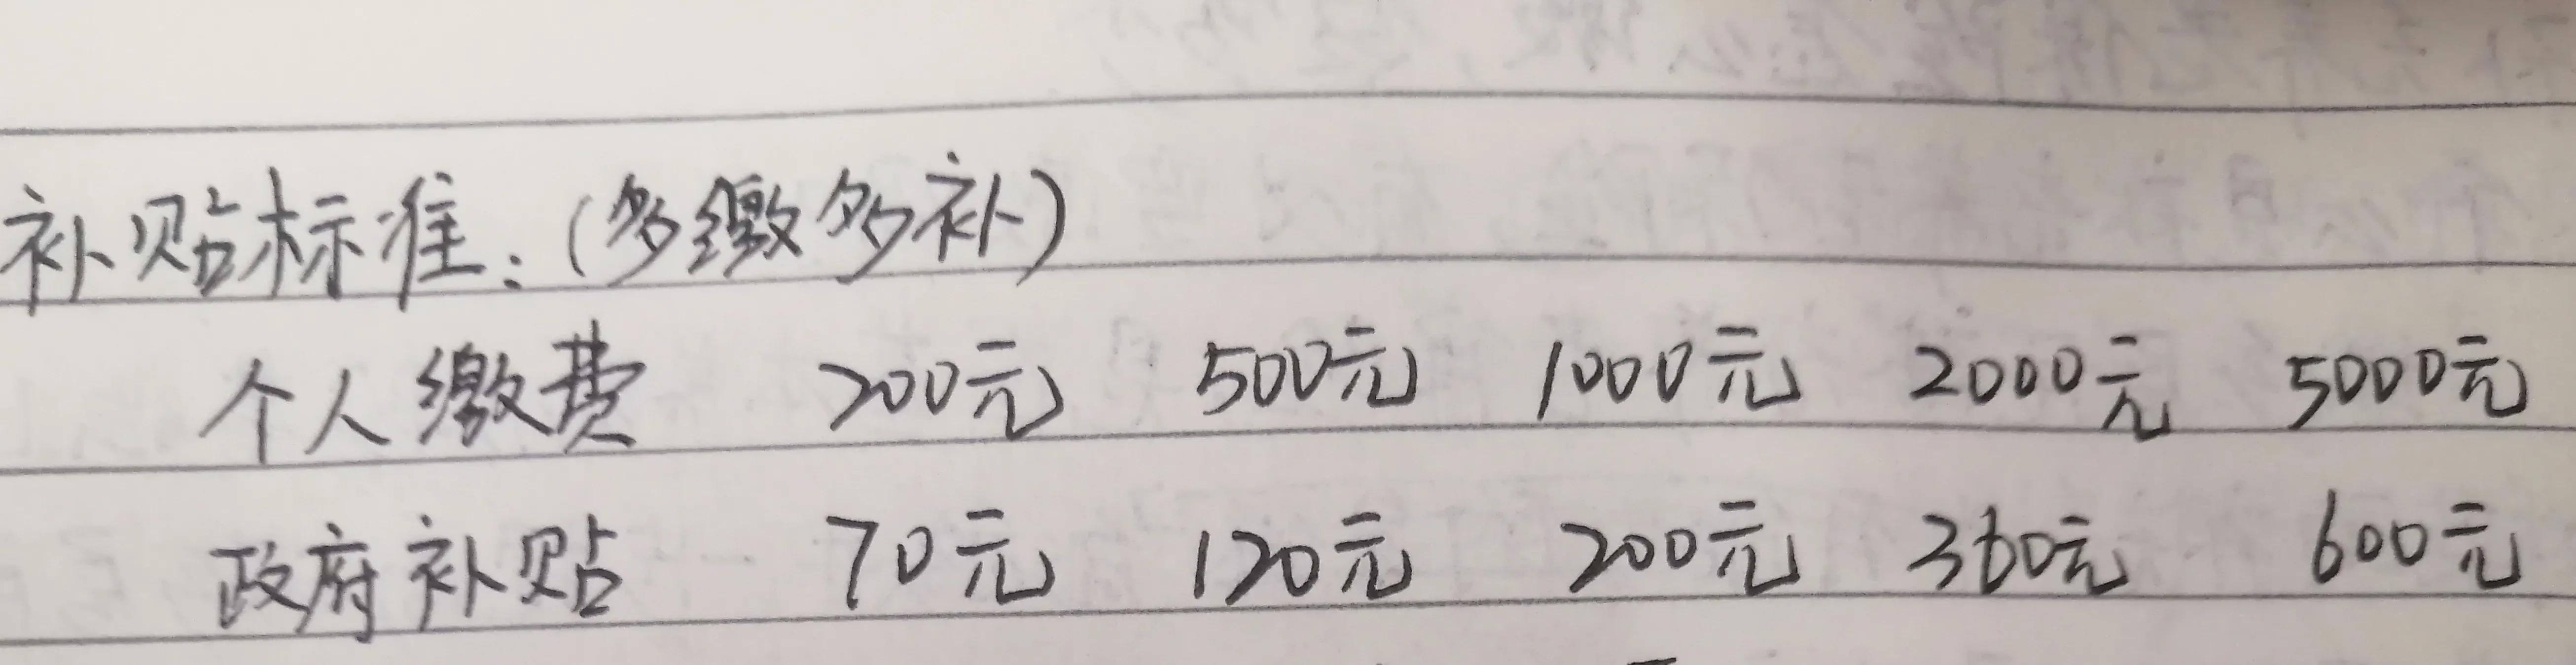 补贴标准：（多缴多补）
个人缴费 200元 500元 1000元 2000元 5000元
政府补贴 70元 120元 200元 360元 600元